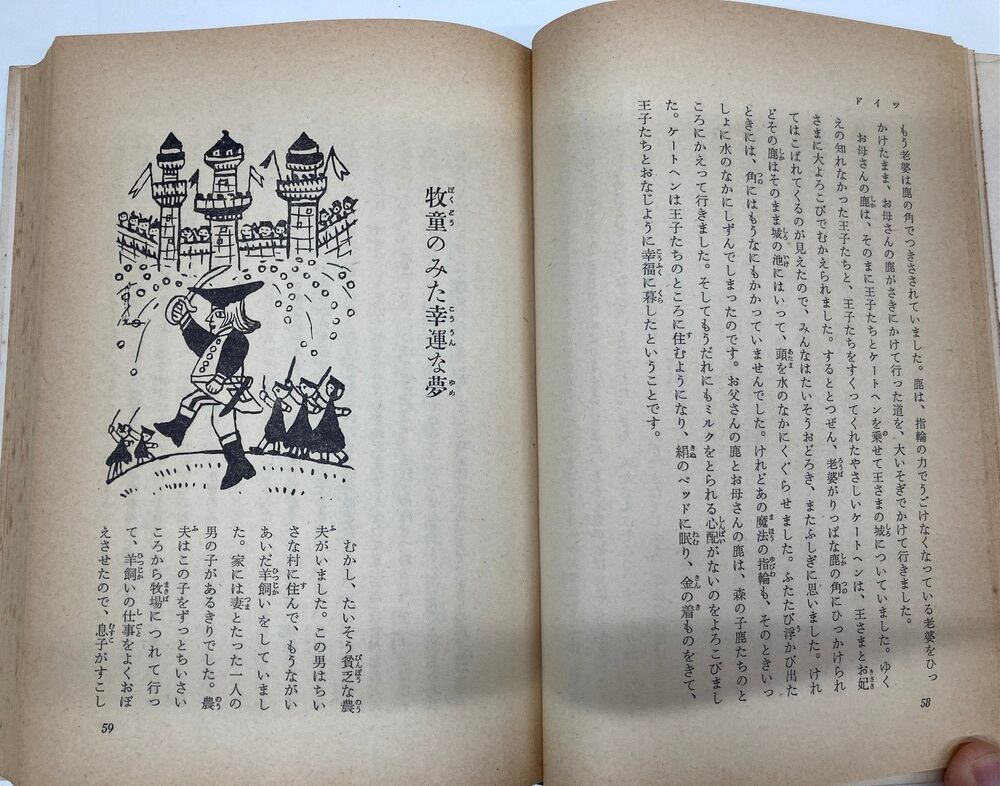 ドイツ
もう老婆は鹿の角でつきさされていました。鹿は、指輪の力でうごけなくなっている老婆をひっ
かけたまま、お母さんの鹿がさきにかけて行った道を、大いそぎでかけて行きました。
お母さんの鹿は、そのまに王子たちとケートヘンを乗せて王さまの城についていました。ゆく
えの知れなかった王子たちと、王子たちをすくってくれたやさしいケートヘンは、王さまとお妃
さまに大よろこびでむかえられました。するととつぜん、老婆がりっぱな鹿の角にひっかけられ
てはこばれてくるのが見えたので、みんなはたいそうおどろき、またふしぎに思いました。けれ
どその鹿はそのまま城の池にはいって、頭を水のなかにくぐらせました。ふたたび浮かび出た
ときには、角にはもうなにもかかっていませんでした。けれどあの魔法の指輪も、そのときいっ
しょに水のなかにしずんでしまったのです。お父さんの鹿とお母さんの鹿は、森の子鹿たちのと
ころにかえって行きました。そしてもうだれにもミルクをとられる心配がないのをよろこびまし
た。ケートヘンは王子たちのところに住むようになり、絹のベッドに眠り、金の着ものをきて、
王子たちとおなじように幸福に暮したということです。
58
牧童のみた幸運な夢
むかし、たいそう貧乏な農
夫がいました。この男はちい
さな村に住んで、もうながい
あいだ羊飼いをしていまし
た。家には妻とたった一人の
男の子があるきりでした。農
夫はこの子をずっとちいさい
ころから牧場につれて行っ
て、羊飼いの仕事をよくおぼ
えさせたので、息子がすこし
59